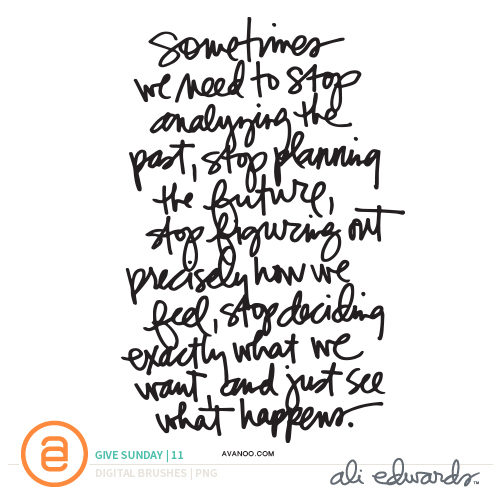 Sometimes
we need to stop
analyzing the
past, stop planning
the future,
stop figuring out
precisely how we
feel, stop deciding
exactly what we
want and just see
what happens.
AVANOO.COM
ae
GIVE SUNDAY | 11
DIGITAL BRUSHES | PNG
ali edwards™